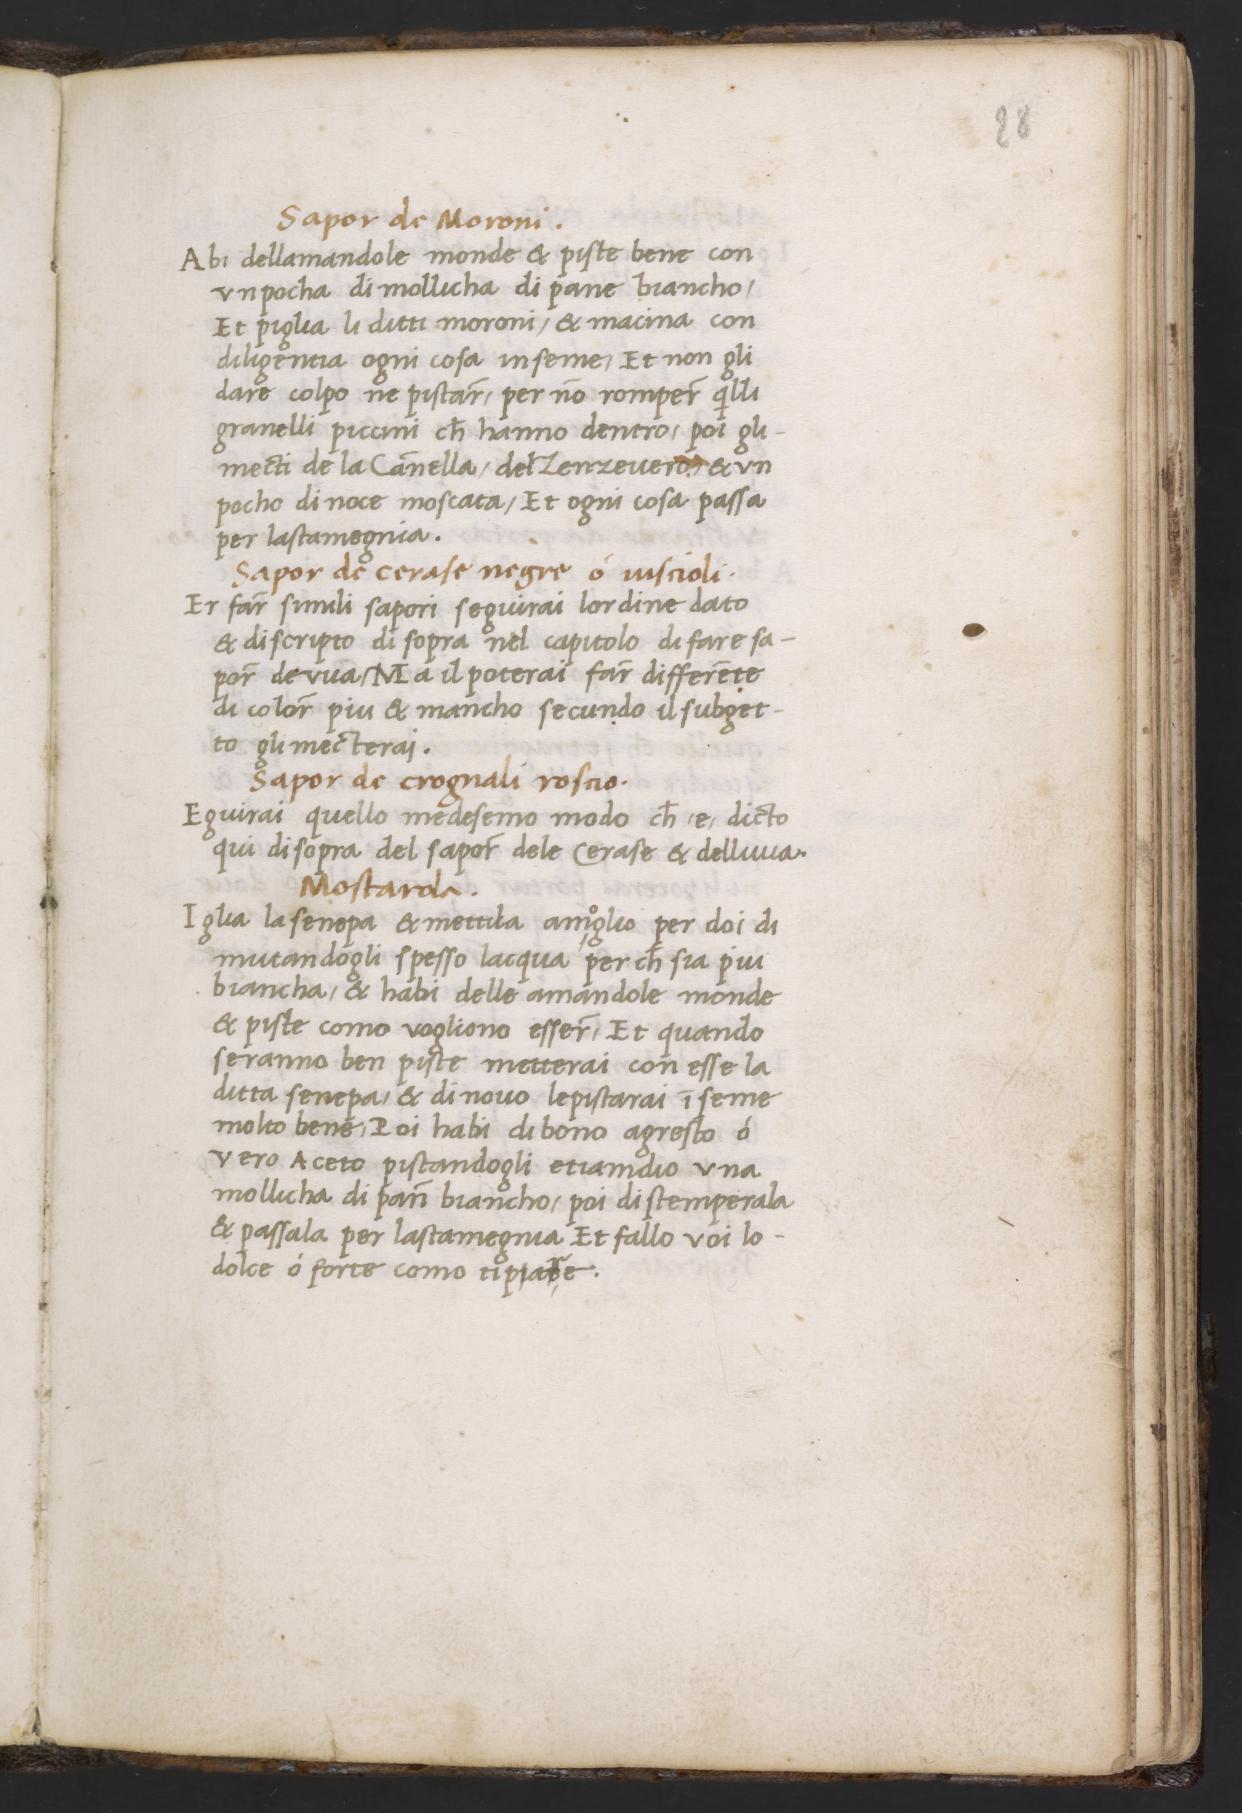 28
Sapor de Moroni.
Abi dellamandole monde & piste bene con
vn pocha di mollicha di pane biancho/
Et piglia li ditti moroni/ & macina con
diligentia ogni cosa inseme/ Et non gli
dare colpo ne pistar̄/ per nō romper̄ q̄lli
granelli piccini ch̄ hanno dentro/ poi gli-
mecti de la Cānella/ del Zenzeuero/ & vn
pocho di noce moscata/ Et ogni cosa passa
per lastamegnia.
Sapor de cerase negre ó uiscioli.
Er far̄ simili sapori seguirai lordine dato
& discripto di sopra nel capitolo di fare sa-
por̄ de vua/ Ma il poterai far̄ differēte
di color̄ piu & mancho secundo il subget-
to gli mecterai.
Sapor de crognali roscio.
Eguirai quello medesemo modo ch̄ /e/ dicto
qui di sopra del sapor̄ dele Cerase & delluua.
Mostarda.
Iglia la senepa & mettila amoglio per doi di
mutandogli spesso lacqua per ch̄ sia piu
biancha/ & habi delle amandole monde
& piste como vogliono esser̄/ Et quando
seranno ben piste metterai con esse la
ditta senepa/ & di nouo lepistarai ī seme
molto bene/ Poi habi di bono agresto ó
vero Aceto pistandogli etiamdio vna
mollicha di pan̄ biancho/ poi distemperala
& passala per lastamegnia Et fallo voi lo-
dolce ó forte como ti piace.